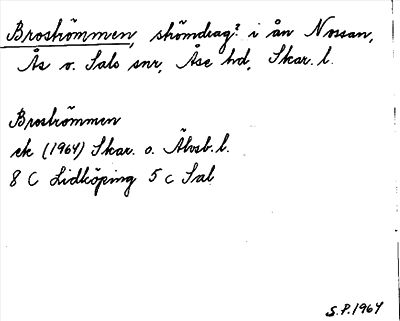 Broströmmen, strömdrag? i ån Nossan,
Ås o. Sals snr, Åse hd, Skar. l.
Broströmmen
ek (1964) Skar. o. Älvsb. l.
8 C Lidköping 5 c Sal
S.P. 1964